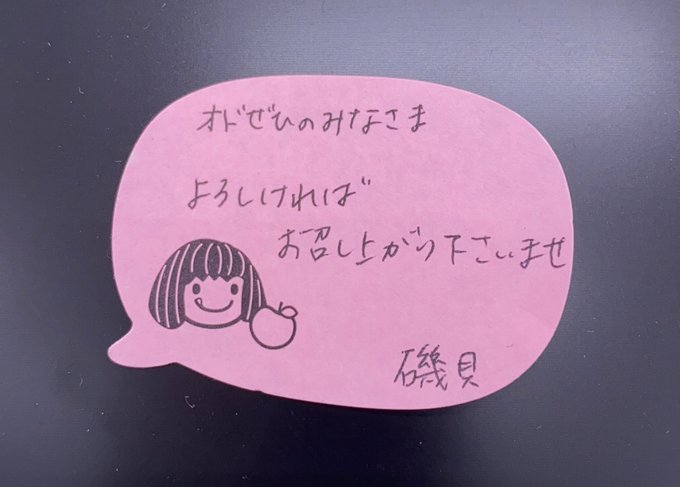 オドぜひのみなさま
よろしければ
お召し上がり下さいませ
磯貝